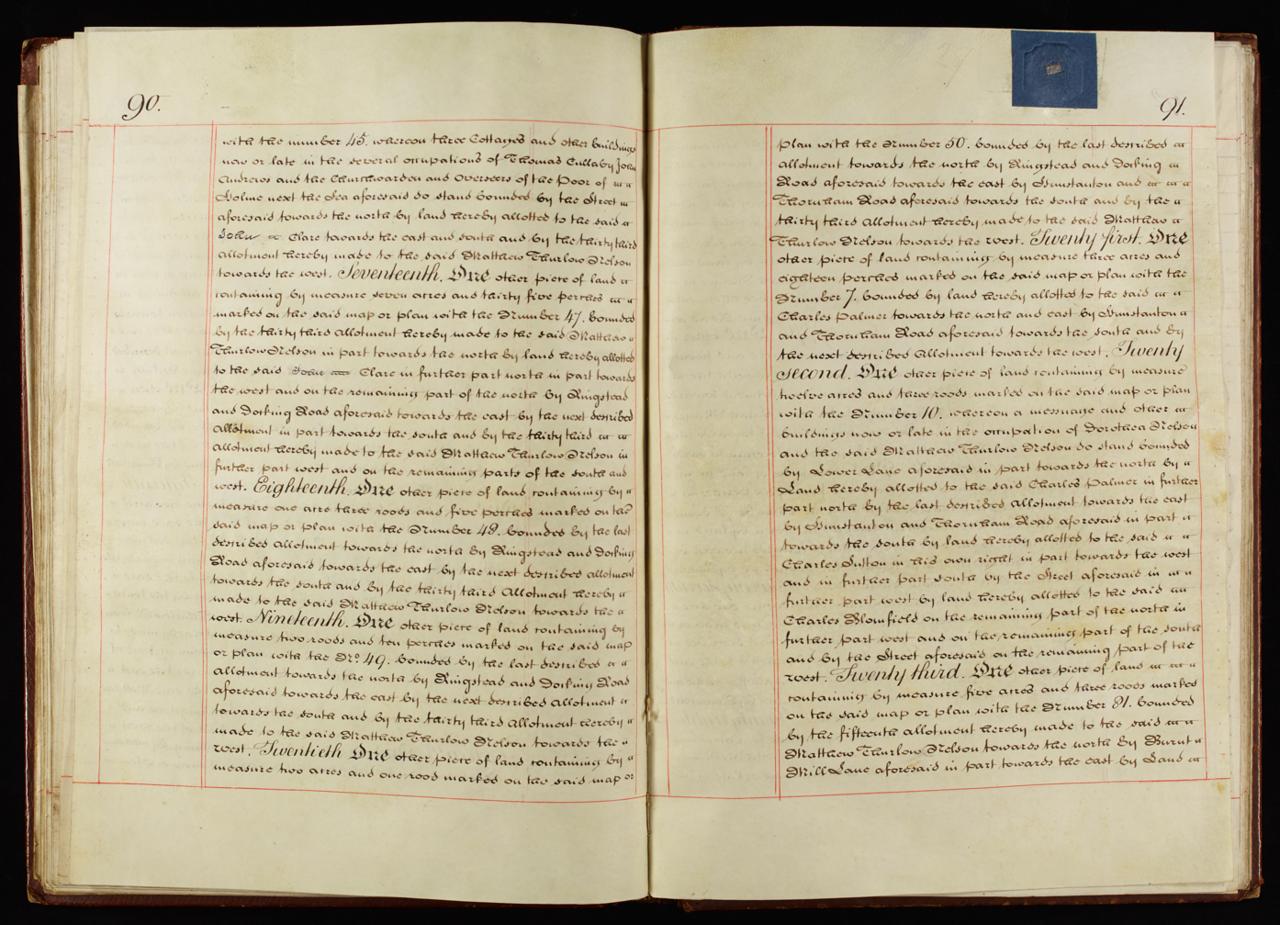 90.
with the number 45. whereon three Cottages and other buildings
now or late in the several occupations of Thomas Cullaby John
Andrews and the Churchwarden and Overseers of the Poor of
Holme next the Sea aforesaid do stand bounded by the Street
aforesaid towards the north by land hereby allotted to the said
John Clare towards the east and south and by the thirty third
allotment hereby made to the said Matthew Thurlow Nelson
towards the west. Seventeenth. One other piece of land
containing by measure seven acres and thirty five perches
marked on the said map or plan with the Number 47. bounded
by the thirty third Allotment hereby made to the said Matthew
Thurlow Nelson in part towards the north by land hereby allotted
to the said John Clare in further part north in part towards
the west and on the remaining part of the north by Ringstead
and Docking Road aforesaid towards the east by the next described
Allotment in part towards the south and by the thirty third
Allotment hereby made to the said Matthew Thurlow Nelson in
further part west and on the remaining parts of the south and
west. Eighteenth. One other piece of land containing by
measure one acre three roods and five perches marked on the
said map or plan with the Number 48. bounded by the last
described Allotment towards the north by Ringstead and Docking
Road aforesaid towards the east by the next described allotment
towards the south and by the thirty third Allotment hereby
made to the said Matthew Thurlow Nelson towards the
west. Nineteenth. One other piece of land containing by
measure two roods and ten perches marked on the said map
or plan with the No. 49. bounded by the last described
allotment towards the north by Ringstead and Docking Road
aforesaid towards the east by the next described Allotment
towards the south and by the thirty third Allotment hereby
made to the said Matthew Thurlow Nelson towards the
west. Twentieth One other piece of land containing by
measure two acres and one rood marked on the said map or
91.
plan with the Number 50. bounded by the last described
allotment towards the north by Ringstead and Docking
Road aforesaid towards the east by Hunstanton and
Thornham Road aforesaid towards the south and by the
thirty third Allotment hereby made to the said Matthew
Thurlow Nelson towards the west. Twenty first. One
other piece of land containing by measure three acres and
eighteen perches marked on the said map or plan with the
Number 7. bounded by land hereby allotted to the said
Charles Palmer towards the north and east by Hunstanton
and Thornham Road aforesaid towards the south and by
the next described Allotment towards the west. Twenty
second. One other piece of land containing by measure
twelve acres and three roods marked on the said map or plan
with the Number 10. whereon a message and other
buildings now or late in the occupation of Dorothea Nelson
and the said Matthew Thurlow Nelson do stand bounded
by Lower Lane aforesaid in part towards the north by
Land hereby allotted to the said Charles Palmer in further
part north by the last described Allotment towards the east
by Hunstanton and Thornham Road aforesaid in part
towards the south by land hereby allotted to the said
Charles Sutton in his own right in part towards the west
and in further part south by the Street aforesaid in
further part west by land hereby allotted to the said
Charles Blomfield on the remaining part of the north in
further part west and on the remaining part of the south
and by the Street aforesaid on the remaining part of the
west. Twenty third. One other piece of land
containing by measure five acres and three roods marked
on the said map or plan with the Number 81. bounded
by the fifteenth allotment hereby made to the said
Matthew Thurlow Nelson towards the north by Burnt
Mill Lane aforesaid in part towards the east by Land